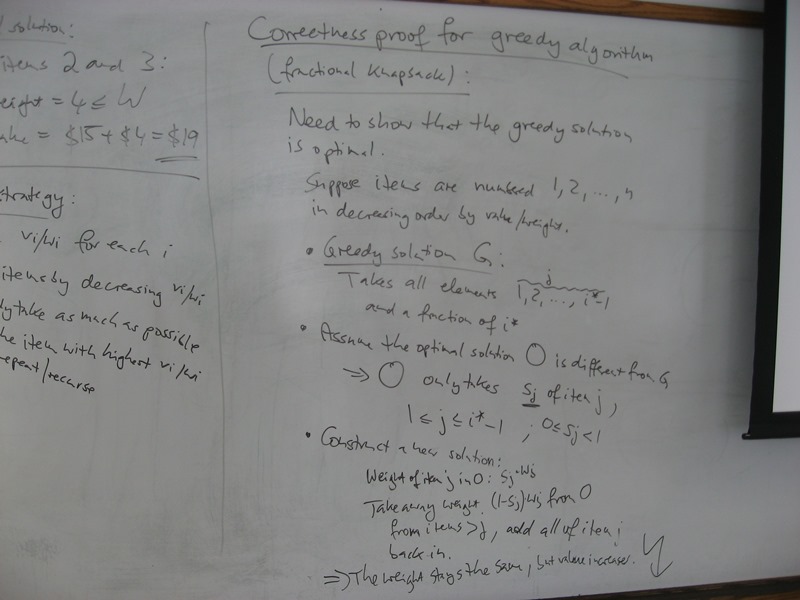 solution:
items 2 and 3:
weight = 4 ≤ W
value = $15 + $4 = $19
strategy:
vi/wi for each i
items by decreasing vi/wi
take as much as possible
the item with highest vi/wi
repeat/recurse
Correctness proof for greedy algorithm
(fractional Knapsack):
Need to show that the greedy solution
is optimal.
Suppose items are numbered 1, 2, ..., n
in decreasing order by value/weight.
• Greedy solution G:
j
Takes all elements 1, 2, ..., i*-1
and a fraction of i*
• Assume the optimal solution O is different from G
⇒ O only takes Sj of item j,
1 ≤ j ≤ i*-1 ; 0 ≤ Sj < 1
• Construct a new solution:
Weight of item j in O: Sj·Wj
Take away weight (1-Sj)Wj from O
from items > j, add all of item j
back in.
⇒ The weight stays the same, but value increases.